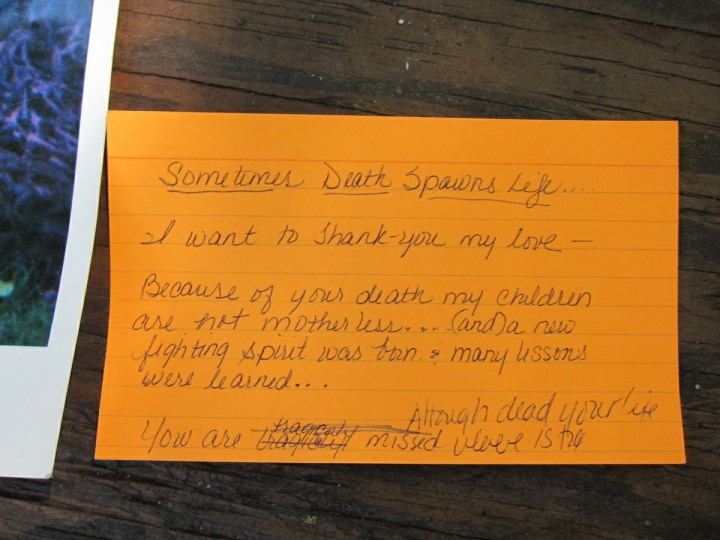 Sometimes Death Spawns Life....
I want to thank-you my love —
Because of your death my children
are not motherless.... (and) a new
fighting spirit was born. & many lessons
were learned...
Altough dead your life
You are missed